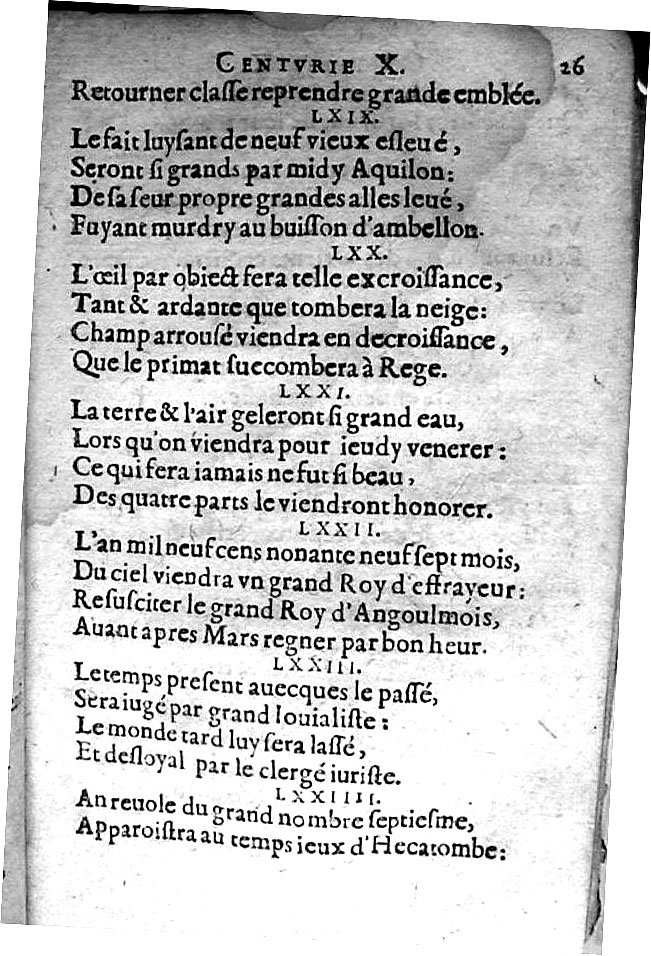 CENTVRIE X. 26
Retourner claſſe reprendre grande emblée.
LXIX.
Le fait luyſant de neuf vieux eſleué,
Seront ſi grands par midy Aquilon:
De ſa ſeur propre grandes alles leué,
Fuyant murdry au buiſſon d'ambellon.
LXX.
L'œil par obiect fera telle excroiſſance,
Tant & ardante que tombera la neige:
Champ arrouſé viendra en decroiſſance,
Que le primat ſuccombera à Rege.
LXXI.
La terre & l'air geleront ſi grand eau,
Lors qu'on viendra pour ieudy venerer:
Ce qui ſera iamais ne fut ſi beau,
Des quatre parts le viendront honorer.
LXXII.
L'an mil neuf cens nonante neuf ſept mois,
Du ciel viendra vn grand Roy d'effrayeur:
Reſuſciter le grand Roy d'Angoulmois,
Auant apres Mars regner par bon heur.
LXXIII.
Le temps preſent auecques le paſſé,
Sera iugé par grand Iouialiſte:
Le monde tard luy ſera laſſé,
Et deſloyal par le clergé iuriſte.
LXXIIII.
An reuole du grand nombre ſeptieſme,
Apparoiſtra au temps ieux d'Hecatombe: